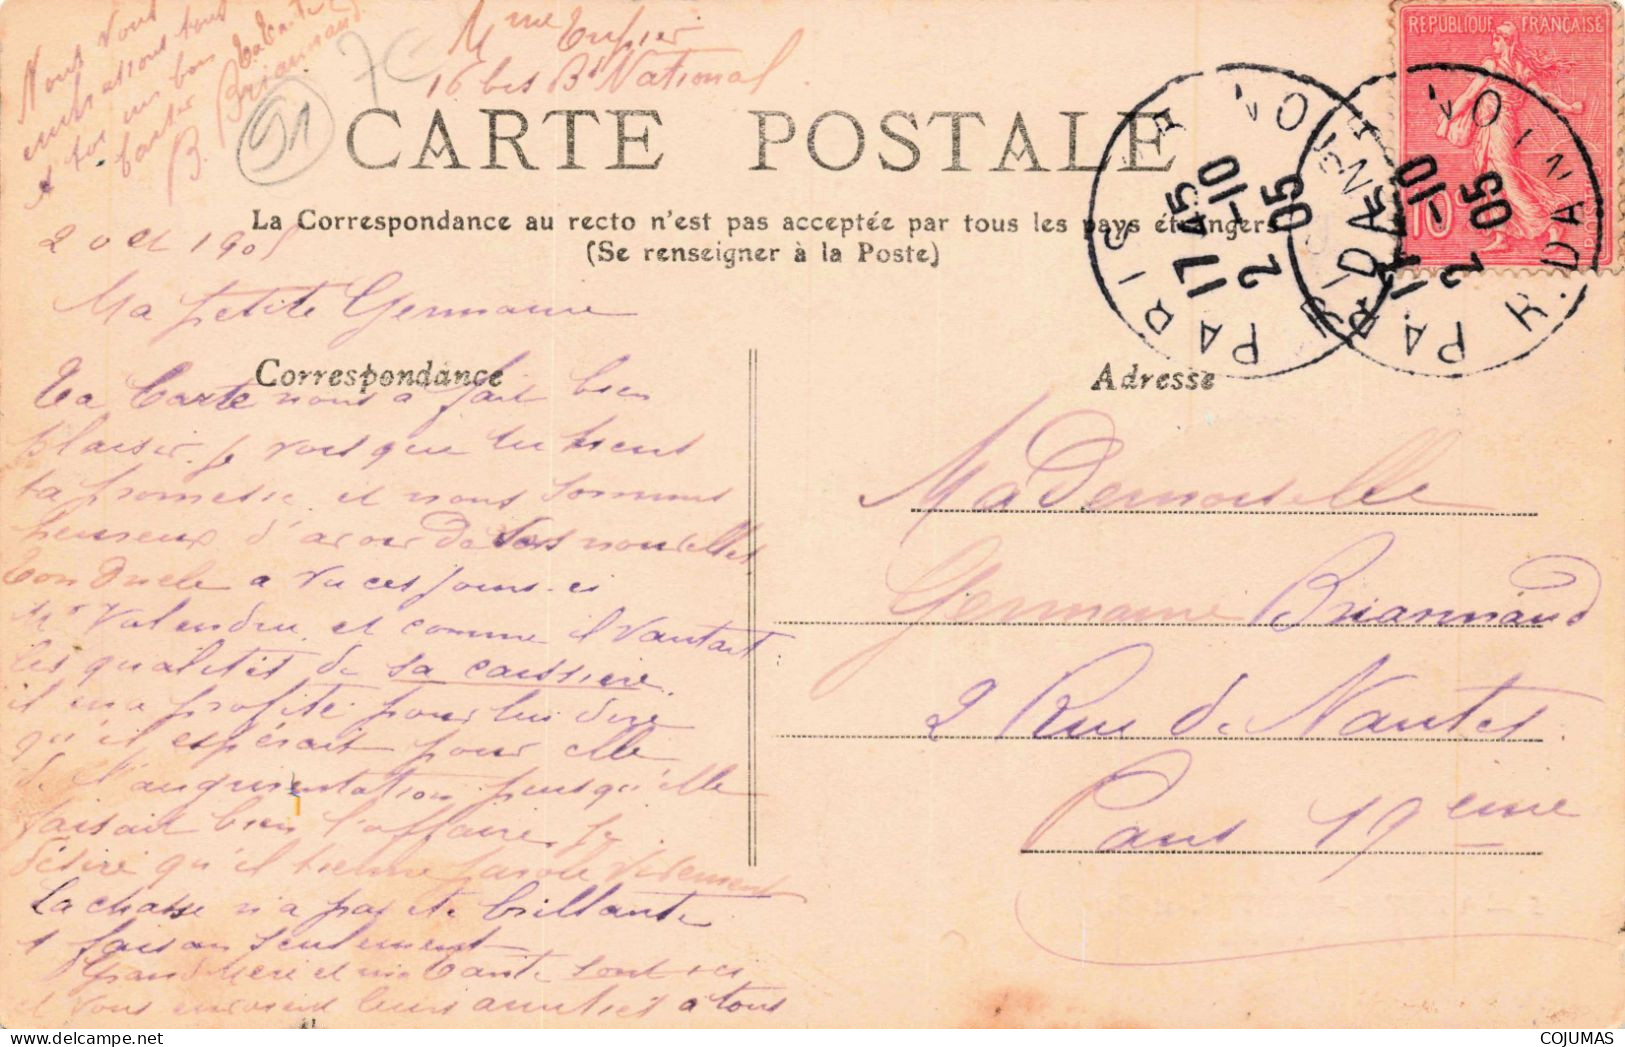 Nous vous
embrassons tous
et toi un bon
baiser
Ta Tante
B. Briannaud
Mme Tupier
16 bis Bd National
91
CARTE POSTALE
La Correspondance au recto n'est pas acceptée par tous les pays étrangers
(Se renseigner à la Poste)
REPUBLIQUE FRANÇAISE
10
POSTES
PARIS
17 45
2 -10
05
R. DANTON
PARIS
2 -10
05
R. DANTON
2 Oct 1905
Ma petite Germaine
Correspondance
Ta Carte nous a fait bien
plaisir je vois que tu tiens
ta promesse et nous sommes
heureux d'avoir de tes nouvelles
Ton Oncle a vu ces jours-ci
Mr Valendru et comme il vantait
les qualités de sa caissière
il en a profité pour lui dire
qu'il espérait pour elle
de l'augmentation puisqu'elle
faisait bien l'affaire. Je
désire qu'il tienne parole vivement
La chasse n'a pas été brillante
1 faisan seulement
Grand Mère et ma Tante sont ici
et vous envoient leurs amitiés à tous
Adresse
Mademoiselle
Germaine Briannaud
2 Rue de Nantes
Paris 19eme
COJUMAS